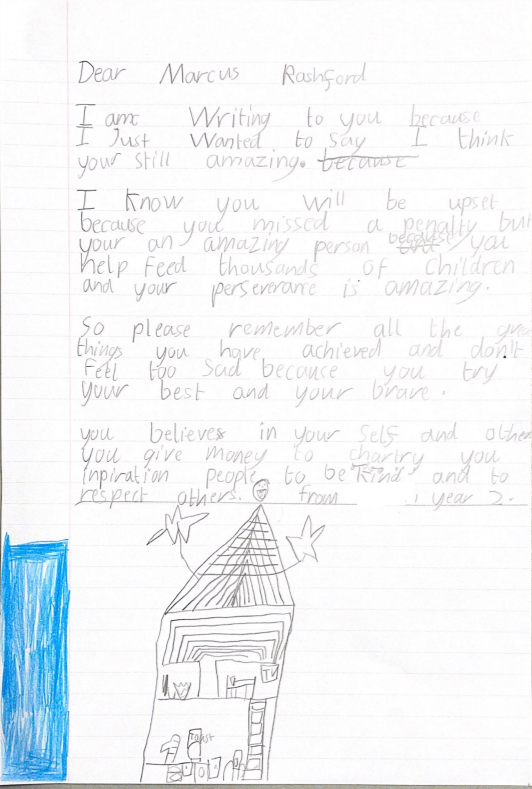 Dear Marcus Rashford
I am Writing to you because
I Just Wanted to say I think
your still amazing. because
I know you will be upset
because you missed a penalty but
your an amazing person because you
help Feed thousands of children
and your perseverance is amazing.
So please remember all the grea
things you have achieved and don't
Feel too Sad because you try
your best and your brave.
you believes in your Self and other
you give money to chartry you
inpiration people to be "Kind" and to
respect others. from year 2.
TV
Toast